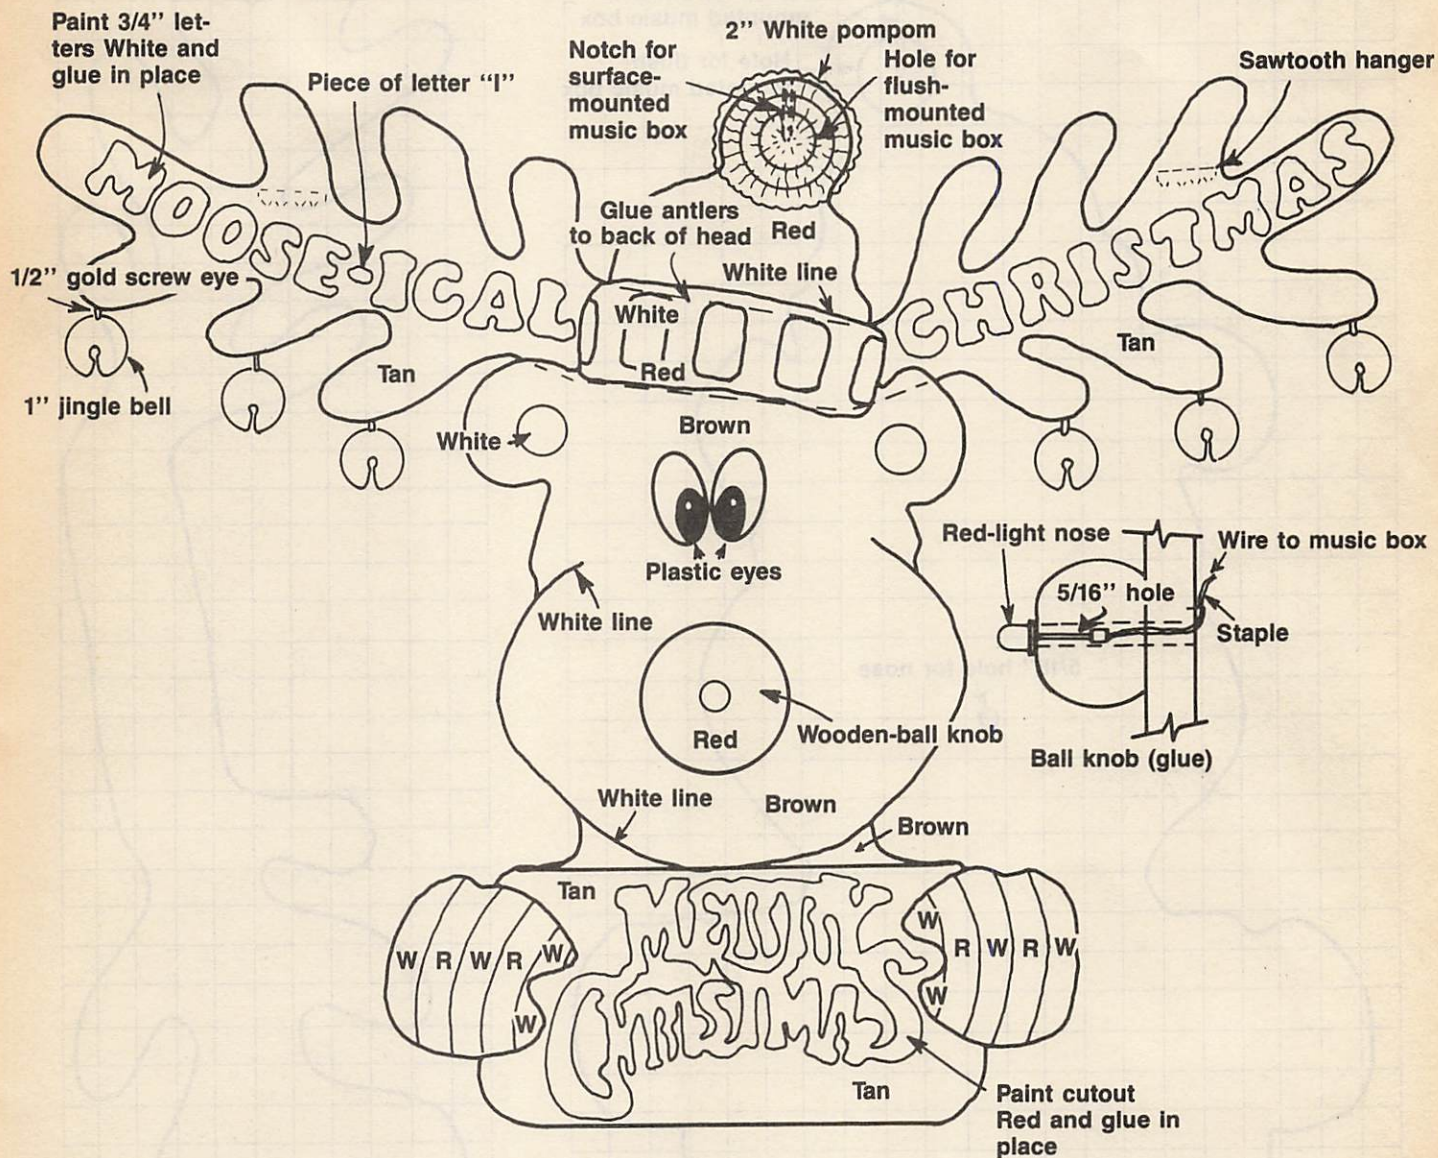 Paint 3/4” let-
ters White and
glue in place
Piece of letter “I”
Notch for
surface-
mounted
music box
2” White pompom
Hole for
flush-
mounted
music box
Sawtooth hanger
MOOSE-ICAL
CHRISTMAS
Glue antlers
to back of head
Red
White line
1/2” gold screw eye
White
Red
Tan
Tan
1” jingle bell
White
Brown
Plastic eyes
White line
Red-light nose
Wire to music box
5/16” hole
Staple
Ball knob (glue)
Red
Wooden-ball knob
White line
Brown
Brown
Tan
MERRY
CHRISTMAS
W R W R W
W
W
R W R W
W
Tan
Paint cutout
Red and glue in
place